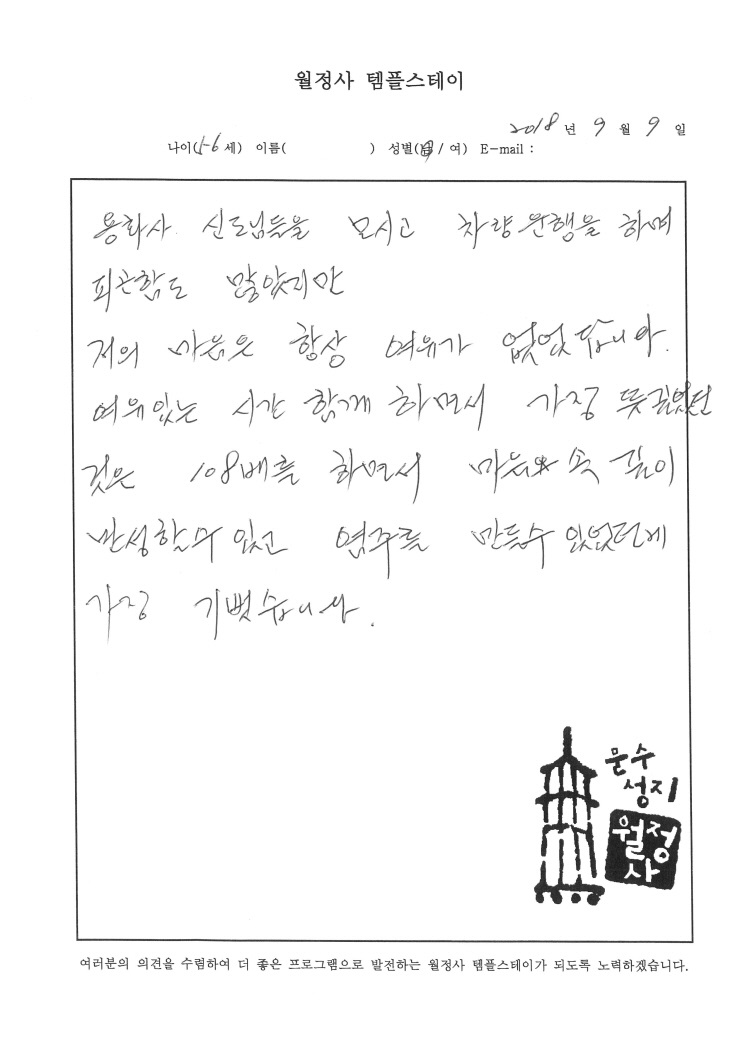 월정사 템플스테이
2018 년 9 월 9 일
나이(56 세) 이름( ) 성별(남 / 여) E-mail :
용화사 신도님들을 모시고 차량운행을 하며
피곤함도 많았지만
저의 마음은 항상 여유가 없었답니다.
여유있는 시간 함게 하면서 가장 뜻깊었던
것은 108배를 하면서 마음 속 깊이
반성할수 있고 염주를 만들수 있었던게
가장 기뻤습니다.
문수
성지
월정
사
여러분의 의견을 수렴하여 더 좋은 프로그램으로 발전하는 월정사 템플스테이가 되도록 노력하겠습니다.